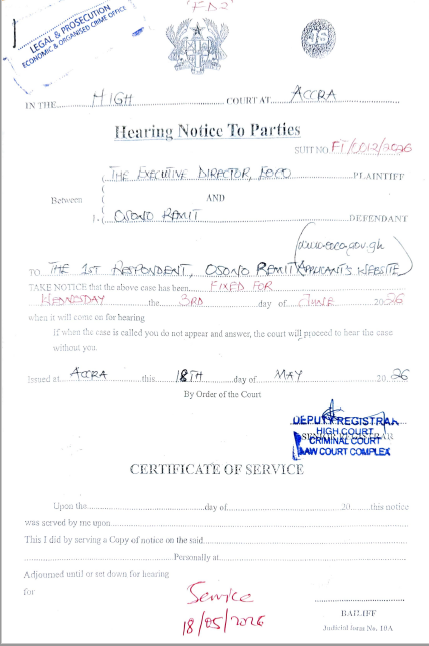 "FD2"
LEGAL & PROSECUTION
ECONOMIC & ORGANISED CRIME OFFICE
JS
IN THE HIGH COURT AT ACCRA
Hearing Notice To Parties
SUIT NO. FT/0012/2026
THE EXECUTIVE DIRECTOR, EOCO PLAINTIFF
Between AND
1. OSONO REMIT DEFENDANT
www.eoco.gov.gh
TO THE 1ST RESPONDENT, OSONO REMIT (APPLICANT'S WEBSITE
TAKE NOTICE that the above case has been FIXED FOR
WEDNESDAY the 3RD day of JUNE 2026
when it will come on for hearing
If when the case is called you do not appear and answer, the court will proceed to hear the case
without you.
Issued at ACCRA this 18TH day of MAY 2026
By Order of the Court
DEPUTY REGISTRAR
HIGH COURT
CRIMINAL COURT
LAW COURT COMPLEX
CERTIFICATE OF SERVICE
Upon the day of 20 this notice
was served by me upon
This I did by serving a Copy of notice on the said
Personally at
Adjourned until or set down for hearing
for
Service
18/05/2026
BAILIFF
Judicial form No. 10A